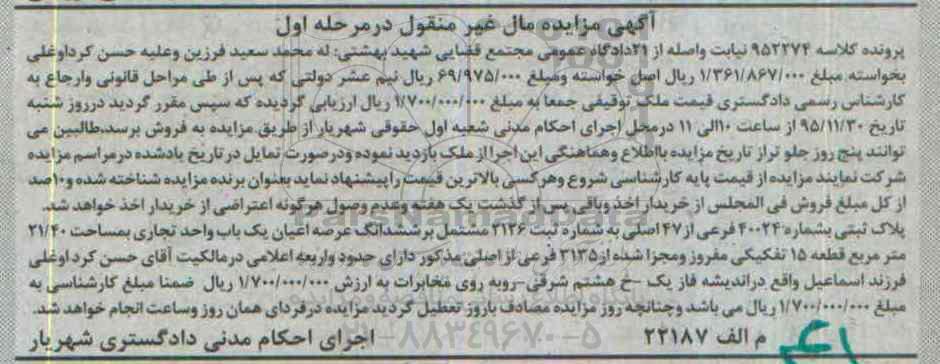 آگهی مزایده مال غیر منقول در مرحله اول
پرونده کلاسه ۹۵۲۲۷۴ نیابت واصله از ۲۱دادگاه عمومی مجتمع قضایی شهید بهشتی: له محمد سعید فرزین وعلیه حسن کرداوغلی
بخواسته مبلغ ۱/۳۶۱/۸۶۷/۰۰۰ ریال اصل خواسته ومبلغ ۶۹/۹۷۵/۰۰۰ ریال نیم عشر دولتی که پس از طی مراحل قانونی وارجاع به
کارشناس رسمی دادگستری قیمت ملک توقیفی جمعا به مبلغ ۱/۷۰۰/۰۰۰/۰۰۰ ریال ارزیابی گردیده که سپس مقرر گردید درروز شنبه
تاریخ ۹۵/۱۱/۳۰ از ساعت ۱۰الی ۱۱ درمحل اجرای احکام مدنی شعبه اول حقوقی شهریار از طریق مزایده به فروش برسد.طالبین می
توانند پنج روز جلو تراز تاریخ مزایده بااطلاع وهماهنگی این اجرا از ملک بازدید نموده ودرصورت تمایل در تاریخ یادشده درمراسم مزایده
شرکت نمایند مزایده از قیمت پایه کارشناسی شروع وهرکسی بالاترین قیمت راپیشنهاد نماید بعنوان برنده مزایده شناخته شده و۱۰صد
از کل مبلغ فروش فی المجلس از خریدار اخذ وباقی پس از گذشت یک هفته وعدم وصول هرگونه اعتراضی از خریدار اخذ خواهد شد.
پلاک ثبتی بشماره ۴۰۰۲۴ فرعی از ۴۷ اصلی به شماره ثبت ۳۱۳۶ مشتمل برششدانگ عرصه اعیان یک باب واحد تجاری بمساحت ۲۱/۴۰
متر مربع قطعه ۱۵ تفکیکی مفروز ومجزا شده از ۳۱۳۵ فرعی از اصلی مذکور دارای حدود واربعه اعلامی درمالکیت آقای حسن کرد اوغلی
فرزند اسماعیل واقع دراندیشه فاز یک -خ هشتم شرقی-روبه روی مخابرات به ارزش ۱/۷۰۰/۰۰۰/۰۰۰ ریال ضمنا مبلغ کارشناسی به
مبلغ ۱/۷۰۰/۰۰۰/۰۰۰ ریال می باشد وچنانچه روز مزایده مصادف باروز تعطیل گردید مزایده درفردای همان روز وساعت انجام خواهد شد.
م الف ۲۲۱۸۷ اجرای احکام مدنی دادگستری شهریار
ParsNamadData
۰۲۱-۸۸۳۴۹۶۷۰-۵